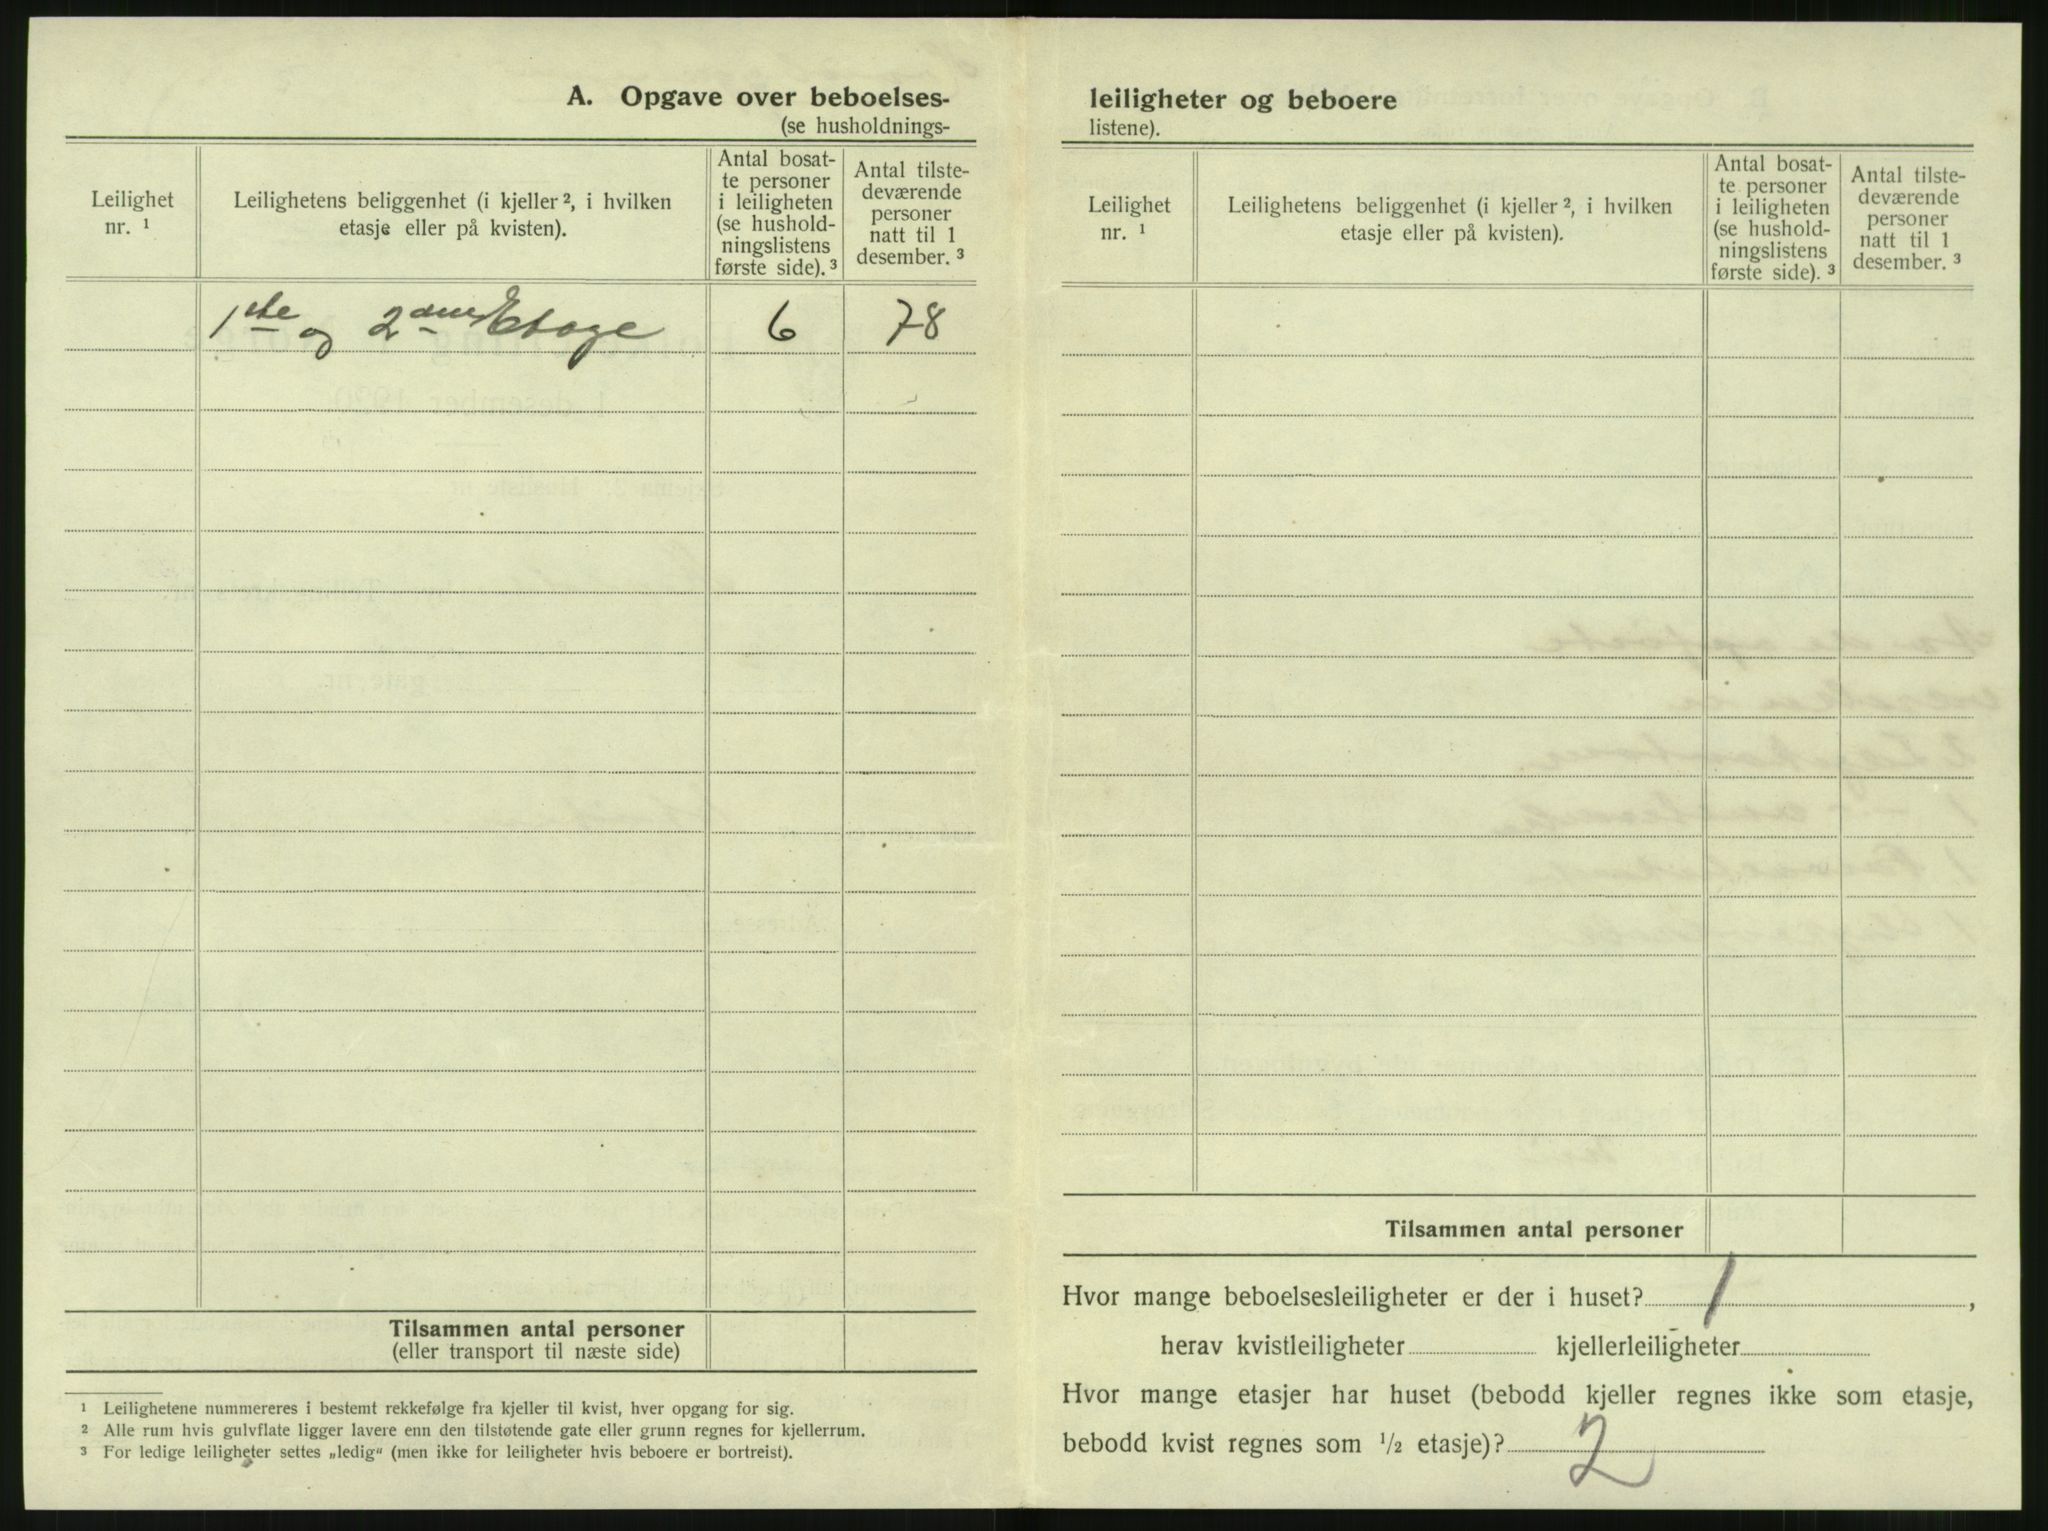 A. Opgave over beboelses-
(se husholdnings-
Leilighet
nr. 1
Leilighetens beliggenhet (i kjeller 2, i hvilken
etasje eller på kvisten).
Antal bosat-
te personer
i leiligheten
(se hushold-
ningslistens
første side). 3
Antal tilste-
deværende
personer
natt til 1
desember. 3
1ste og 2den Etage 6 78
Tilsammen antal personer
(eller transport til næste side)
1 Leilighetene nummereres i bestemt rekkefølge fra kjeller til kvist, hver opgang for sig.
2 Alle rum hvis gulvflate ligger lavere enn den tilstøtende gate eller grunn regnes for kjellerrum.
3 For ledige leiligheter settes „ledig“ (men ikke for leiligheter hvis beboere er bortreist).
leiligheter og beboere
listene).
Leilighet
nr. 1
Leilighetens beliggenhet (i kjeller 2, i hvilken
etasje eller på kvisten).
Antal bosat-
te personer
i leiligheten
(se hushold-
ningslistens
første side). 3
Antal tilste-
deværende
personer
natt til 1
desember. 3
Tilsammen antal personer
Hvor mange beboelsesleiligheter er der i huset? 1,
herav kvistleiligheter kjellerleiligheter
Hvor mange etasjer har huset (bebodd kjeller regnes ikke som etasje,
bebodd kvist regnes som 1/2 etasje)? 2